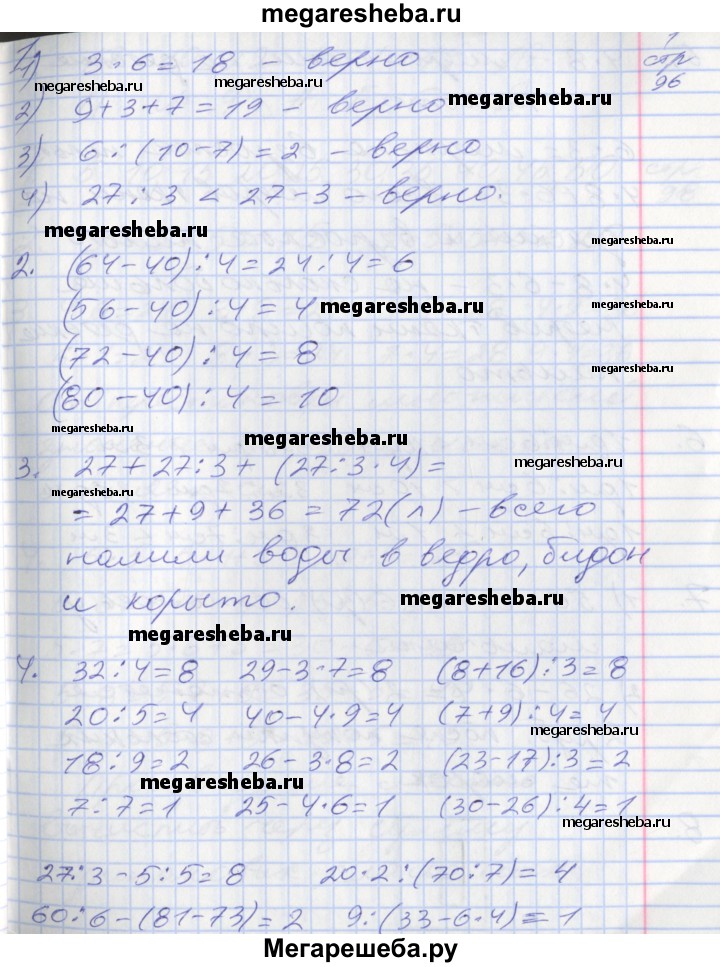 megaresheba.ru
1) 3 · 6 = 18 - верно
1
стр
96
megaresheba.ru
megaresheba.ru
megaresheba.ru
2) 9 + 3 + 7 = 19 - верно
megaresheba.ru
3) 6 : (10 - 7) = 2 - верно
4) 27 : 3 < 27 - 3 - верно.
megaresheba.ru
megaresheba.ru
2. (64 - 40) : 4 = 24 : 4 = 6
(56 - 40) : 4 = 4
megaresheba.ru
(72 - 40) : 4 = 8
megaresheba.ru
(80 - 40) : 4 = 10
megaresheba.ru
megaresheba.ru
3. 27 + 27 : 3 + (27 : 3 · 4) =
megaresheba.ru
megaresheba.ru
= 27 + 9 + 36 = 72 (л) - всего
налили воды в ведро, бидон
и корыто.
megaresheba.ru
megaresheba.ru
4. 32 : 4 = 8 29 - 3 · 7 = 8 (8 + 16) : 3 = 8
20 : 5 = 4 40 - 4 · 9 = 4 (7 + 9) : 4 = 4
megaresheba.ru
18 : 9 = 2 26 - 3 · 8 = 2 (23 - 17) : 3 = 2
megaresheba.ru
7 : 7 = 1 25 - 4 · 6 = 1 (30 - 26) : 4 = 1
megaresheba.ru
27 : 3 - 5 : 5 = 8 20 · 2 : (70 : 7) = 4
60 : 6 - (81 - 73) = 2 9 : (33 - 6 · 4) = 1
Мегарешеба.ру